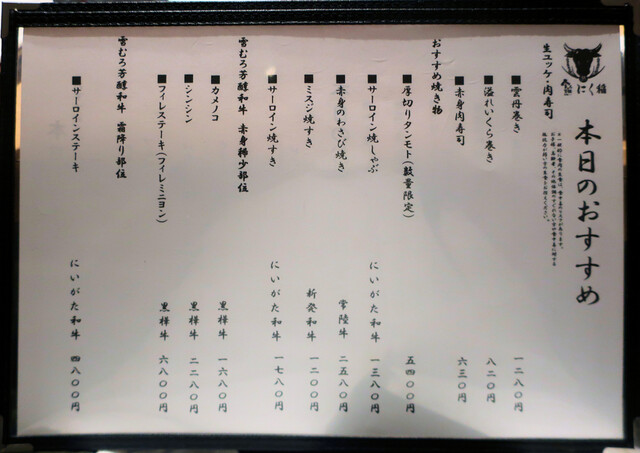 にく福
本日のおすすめ
生ユッケ・肉寿司
■雲丹巻き 一二八〇円
■溢れいくら巻き 八二〇円
■赤身肉寿司 六三〇円
おすすめ焼き物
■厚切りタンモト(数量限定) 五四〇〇円
■サーロイン焼しゃぶ にいがた和牛 一三八〇円
■赤身のわさび焼き 常陸牛 二五八〇円
■ミスジ焼すき 新発和牛 一二〇〇円
■サーロイン焼すき にいがた和牛 一七八〇円
雪むろ芳醇和牛 赤身稀少部位
■カメノコ 黒樺牛 一六八〇円
■シンシン 黒樺牛 二二八〇円
■フィレステーキ(フィレミニヨン) 黒樺牛 六八〇〇円
雪むろ芳醇和牛 霜降り部位
■サーロインステーキ にいがた和牛 四八〇〇円